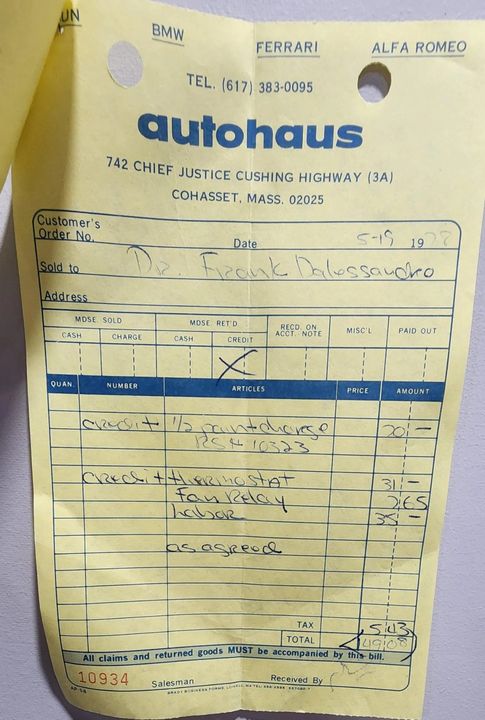 BMW FERRARI ALFA ROMEO
TEL. (617) 383-0095
autohaus
742 CHIEF JUSTICE CUSHING HIGHWAY (3A)
COHASSET, MASS. 02025
Customer's
Order No. Date 5-19 19
Sold to Dr. Frank Dalessandro
Address
MDSE. SOLD MDSE. RET'D. RECD. ON ACCT. NOTE MISC'L PAID OUT
CASH CHARGE CASH CREDIT
X
QUAN. NUMBER ARTICLES PRICE AMOUNT
credit 1/2 paint charge 20 —
RS# 10323
credit thermostat 31 —
Fan Relay 65
Labor 35 —
as agreed
TAX 5.43
TOTAL
All claims and returned goods MUST be accompanied by this bill.
10934 Salesman Received By